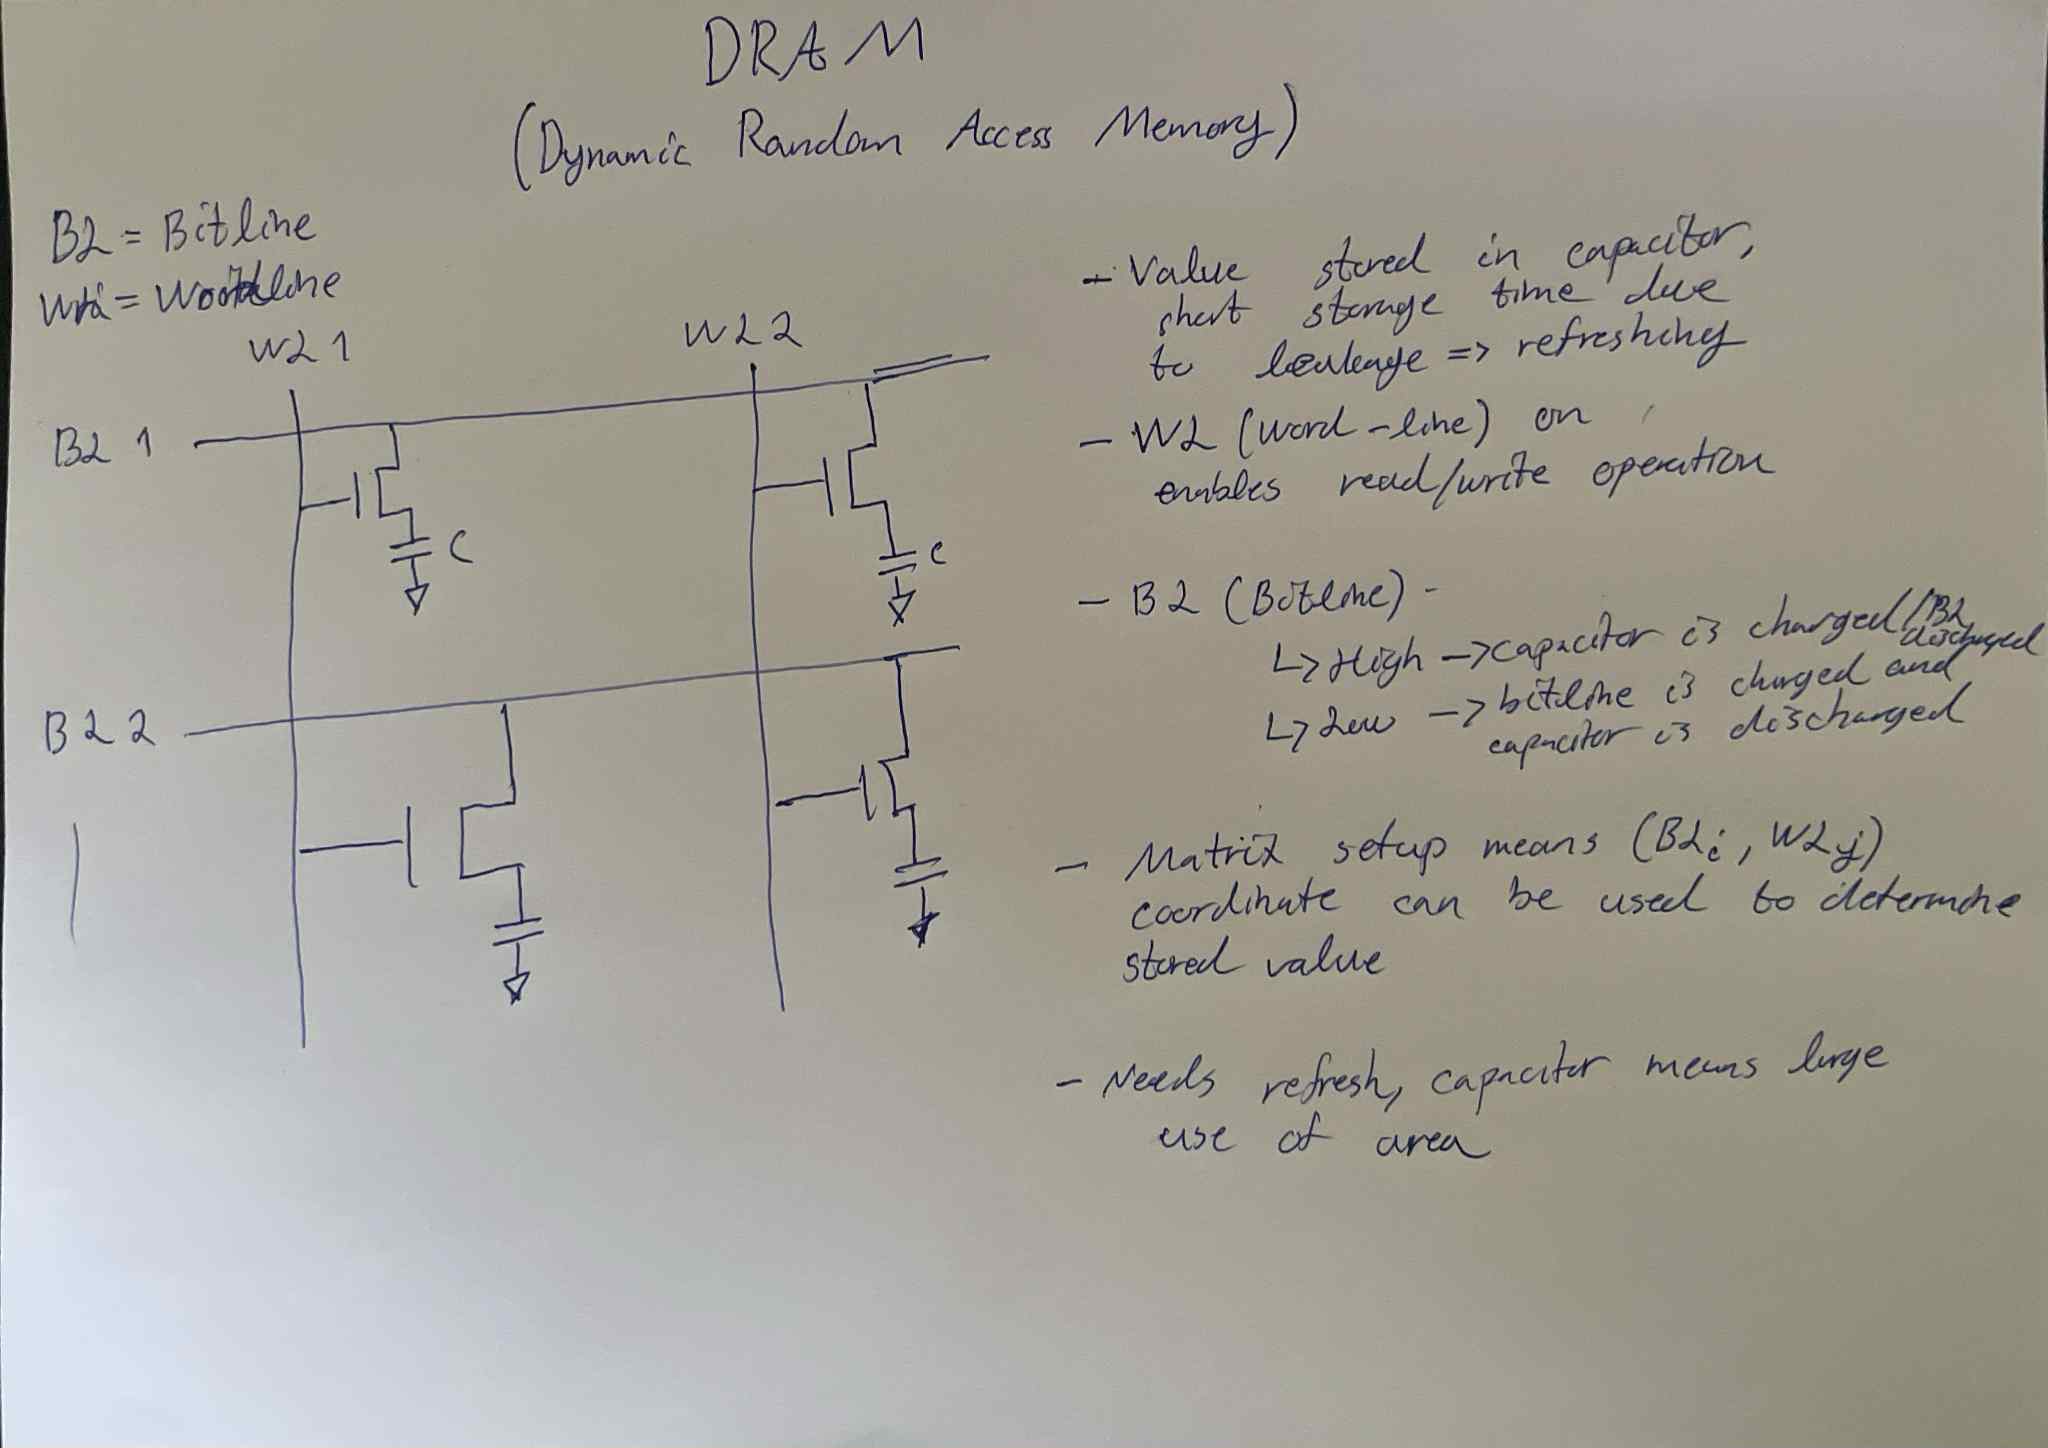 DRAM
(Dynamic Random Access Memory)
BL = Bitline
WL = Wordline
WL 1
WL 2
BL 1
C
C
BL 2
- Value stored in capacitor,
short storage time due
to leakage => refreshing
- WL (word-line) on
enables read/write operation
- BL (Bitline) -
↳ High -> capacitor is charged/BL
discharged
↳ Low -> bitline is charged and
capacitor is discharged
- Matrix setup means (BLi, WLj)
coordinate can be used to determine
stored value
- Needs refresh, capacitor means large
use of area